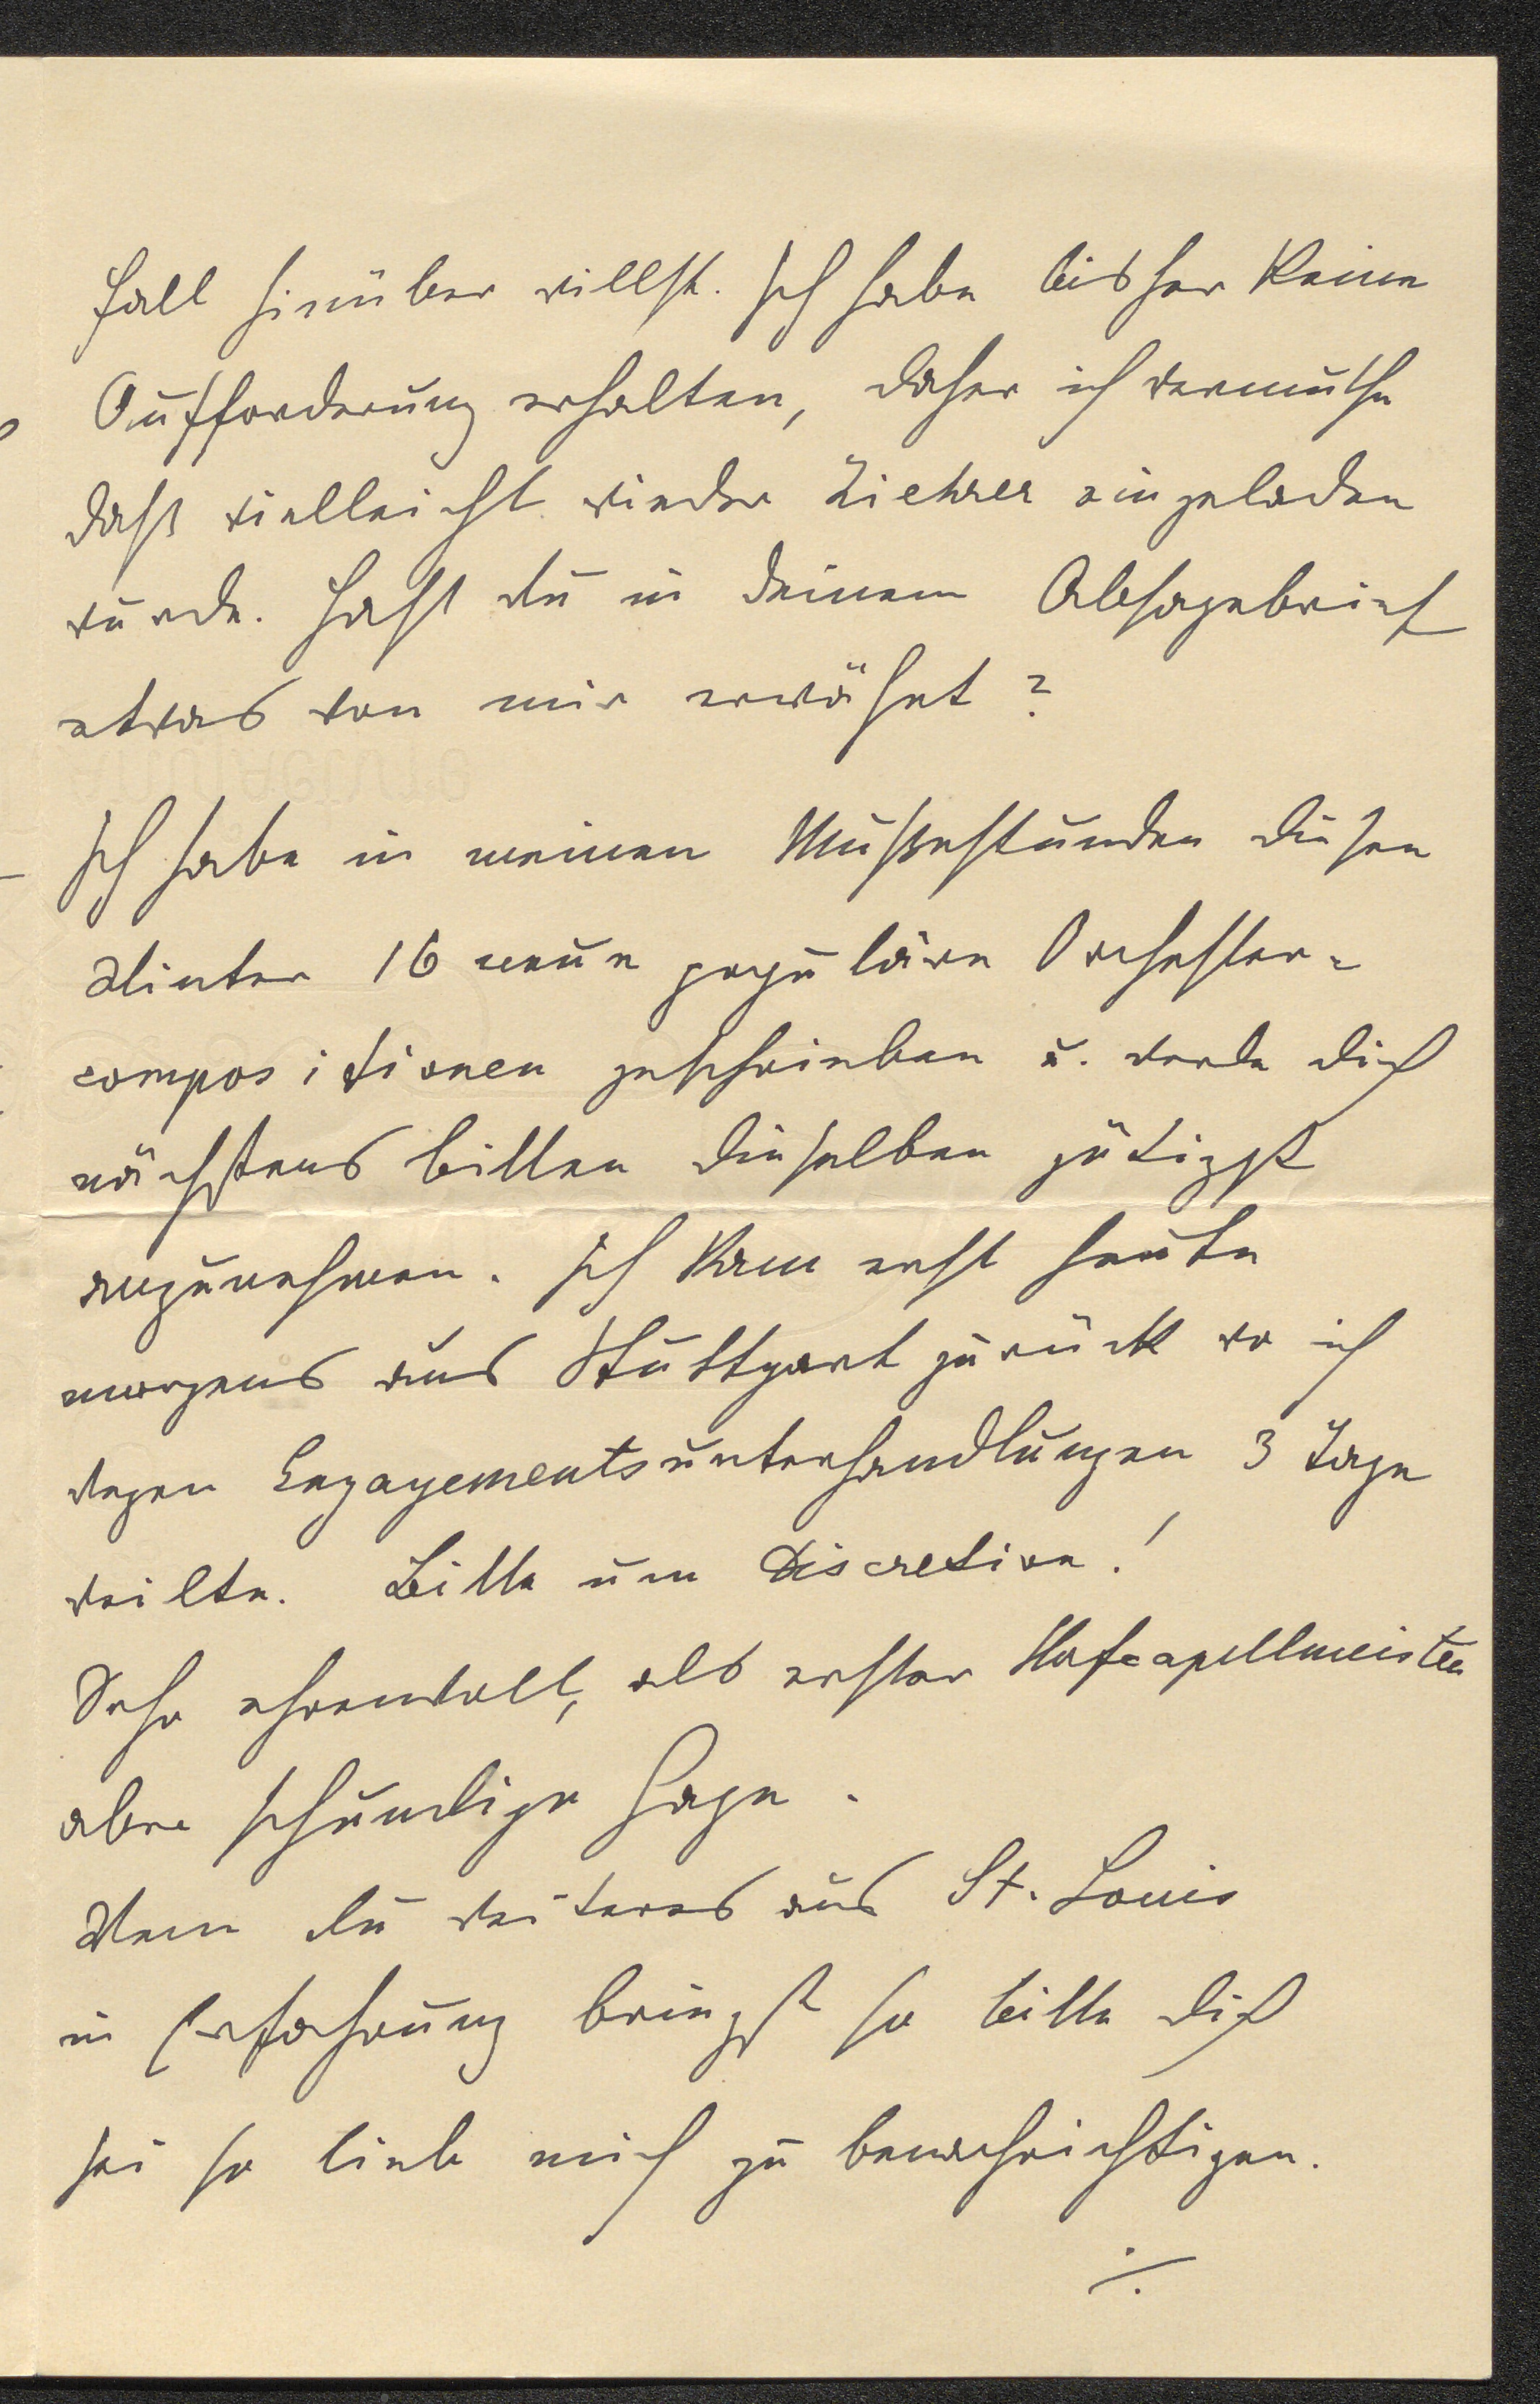 fall hinüber willst. Ich habe bisher keine
Aufforderung erhalten, daher ich vermuthe
daß vielleicht wieder Ziehrer eingeladen
wurde. Hast du in deinem Absagebrief
etwas von mir erwähnt?
Ich habe in meinen Mußestunden diesen
Winter 16 neue populäre Orchester-
compositionen geschrieben u. werde dich
nächstens bitten dieselben gütigst
anzunehmen. Ich kam erst heute
morgens aus Stuttgart zurück wo ich
wegen Engagementsunterhandlungen 3 Tage
weilte. Bitte um Discretion!
Sehr ehrenvoll, als erster Hofcapellmeister
aber schundige Gage.
Wenn du weiteres aus St. Louis
in Erfahrung bringst so bitte dich
sei so lieb mich zu benachrichtigen.
./.